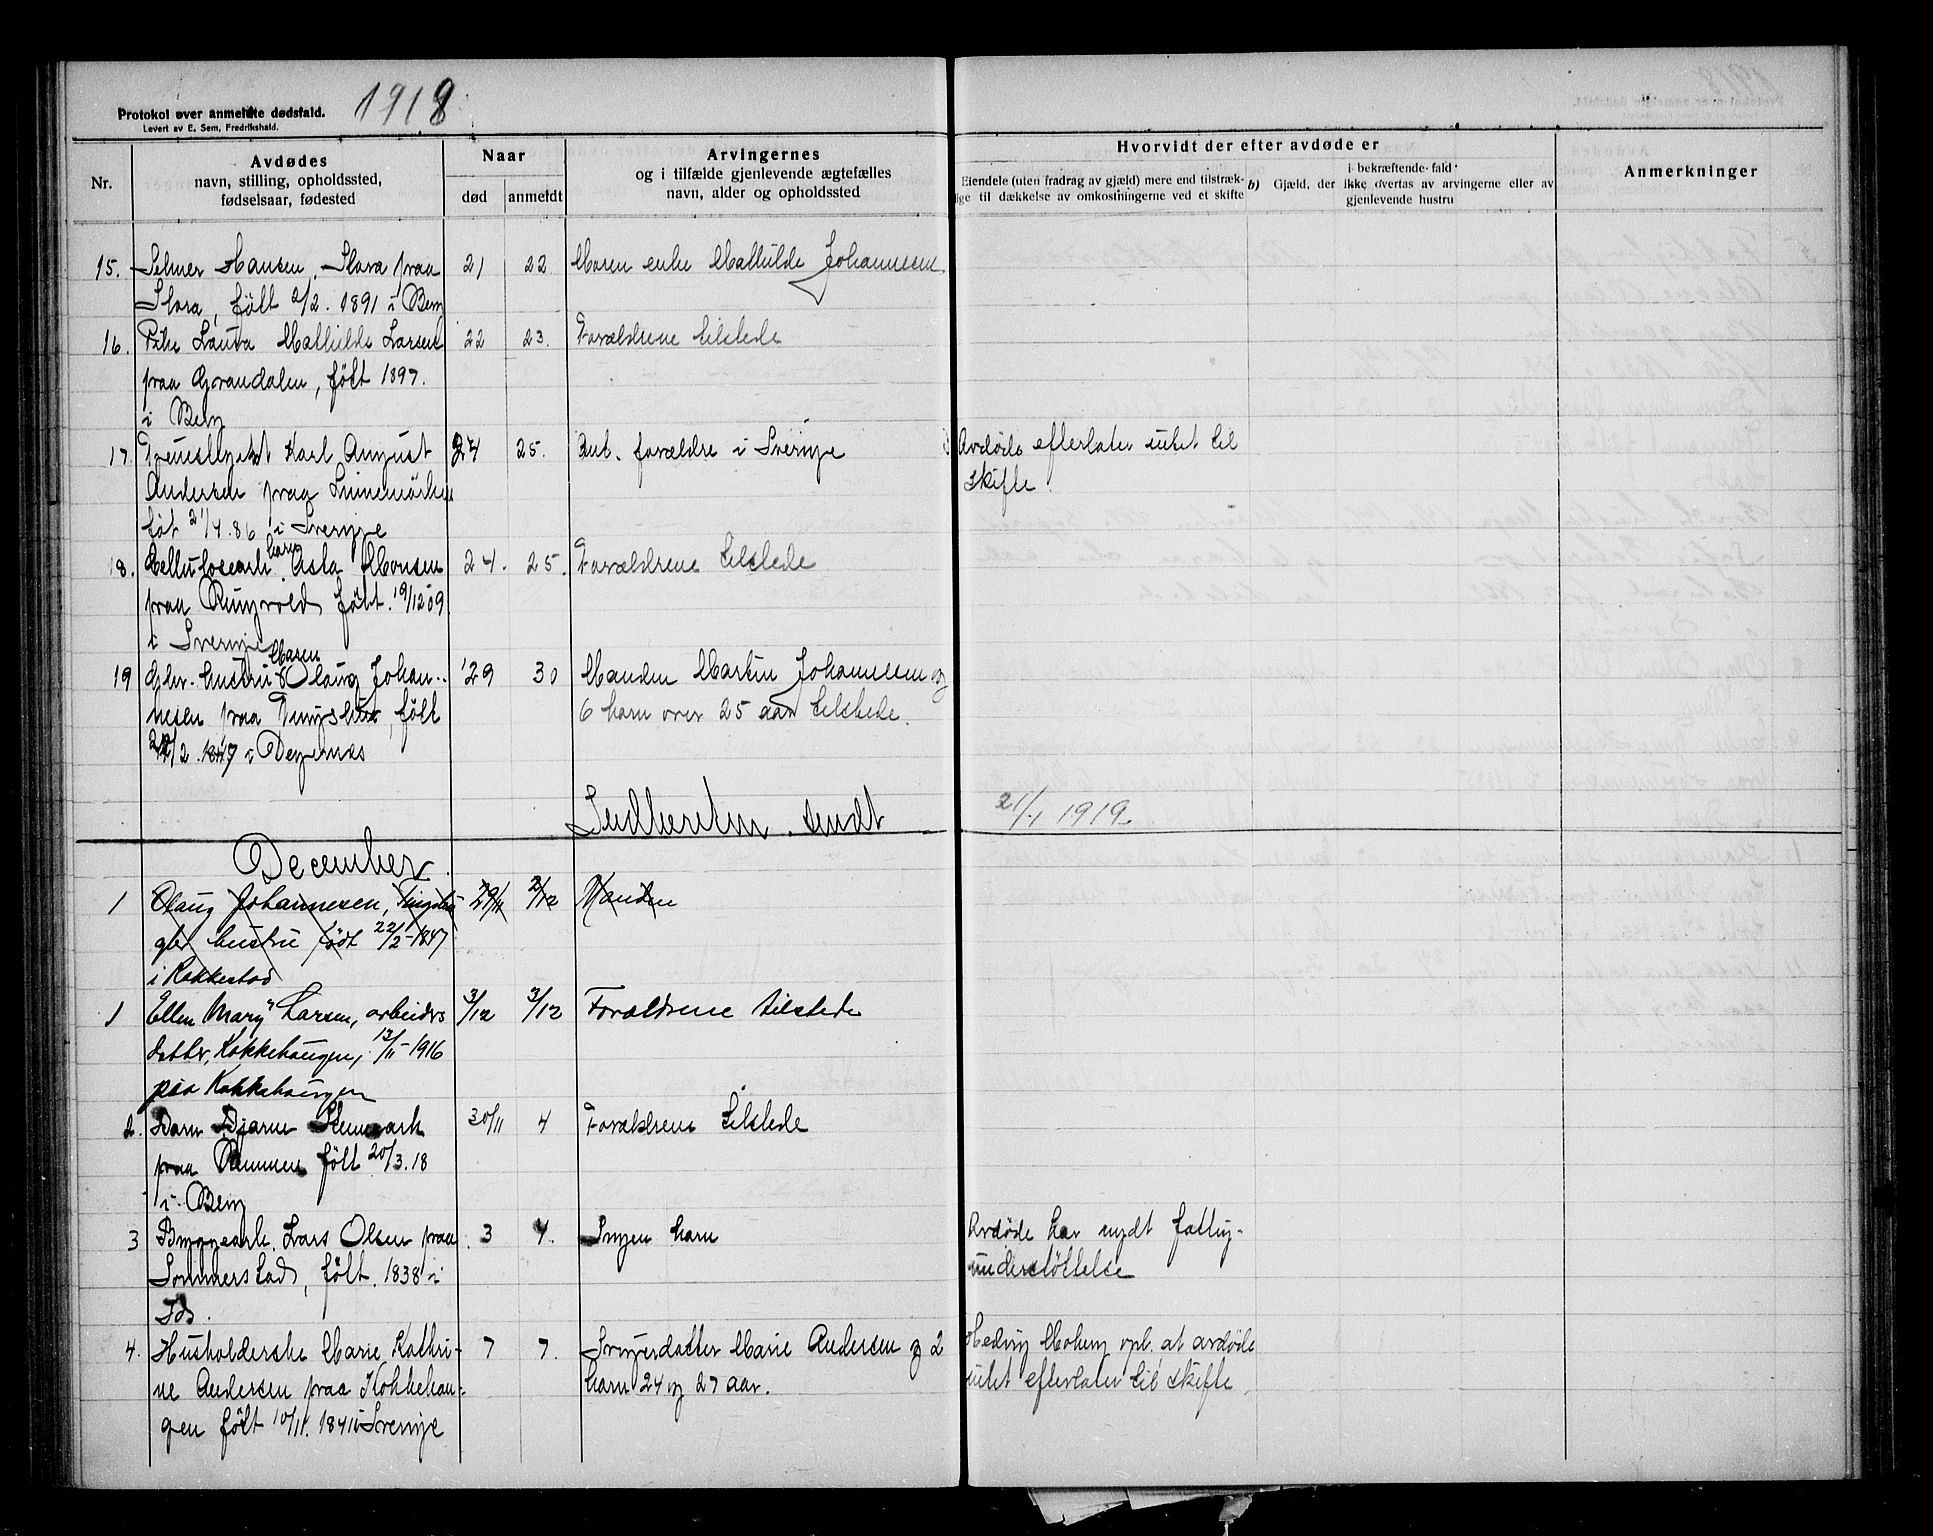 Protokol over anmeldte dødsfald. 1918
Levert av E. Sem, Fredrikshald.
Nr.
Avdødes
navn, stilling, opholdssted,
fødselsaar, fødested
Naar
død anmeldt
Arvingernes
og i tilfælde gjenlevende ægtefælles
navn, alder og opholdssted
Hvorvidt der efter avdøde er
Eiendele (uten fradrag av gjæld) mere end tilstræk-
lige til dækkelse av omkostningerne ved et skifte
b) Gjæld, der i bekræftende fald
ikke overtas av arvingerne eller av
gjenlevende hustru
Anmerkninger
15. Selmer Hansen, Stora paa 21 22 Moren enke Mathilde Johannesen
Stora, født 2/2. 1891 i Berg
16. Pike Laura Mathilde Larsen 22 23. Forældrene tilstede
paa Grandalen, født 1897.
i Berg
17. Karl August 24 25. Ant. forældre i Sverige Avdøde efterlater intet til
Andersen paa skifte.
føt 21/4.86 i Sverige
18. Cellulosearb. barn Asta Monsen 24. 25. Forældrene tilstede
paa Ringvold født 19/12 09
i Sverige
19 Gbr. hustru Maren Olaug Johan- 29 30 Manden Martin Johannesen og
nesen paa født 6 barn over 25 aar tilstede.
22/2. 1847 i Degernes
Indberetn. sendt 21/1 1919.
December
1 Olaug Johannesen, 29/11 2/12 Manden
gbr hustru født 22/2-1847
i Rakkestad
1 Ellen Mary Larsen, arbeiders 3/12 3/12 Forældrene tilstede
datter, Kokkehaugen, 13/11-1916
paa Kokkehaugen
2. Barn Bjarne Stenmark 30/11 4 Forældrene tilstede
paa Remmen født 20/3.18
i Berg
3 Bryggearb. Lars Olsen paa 3 4. Ingen barn Avdøde har nydt fattig-
Sommerstad, født. 1838 i understøttelse
Ids.
4. Husholderske Marie Kathri- 7 7. Svigerdatter Marie Andersen og 2 Hedvig Moberg opl. at avdøde
ne Andersen paa Klokkehau- barn 24 og 27 aar. intet efterlater til skifte.
gen født 10/11. 1841 i Sverige